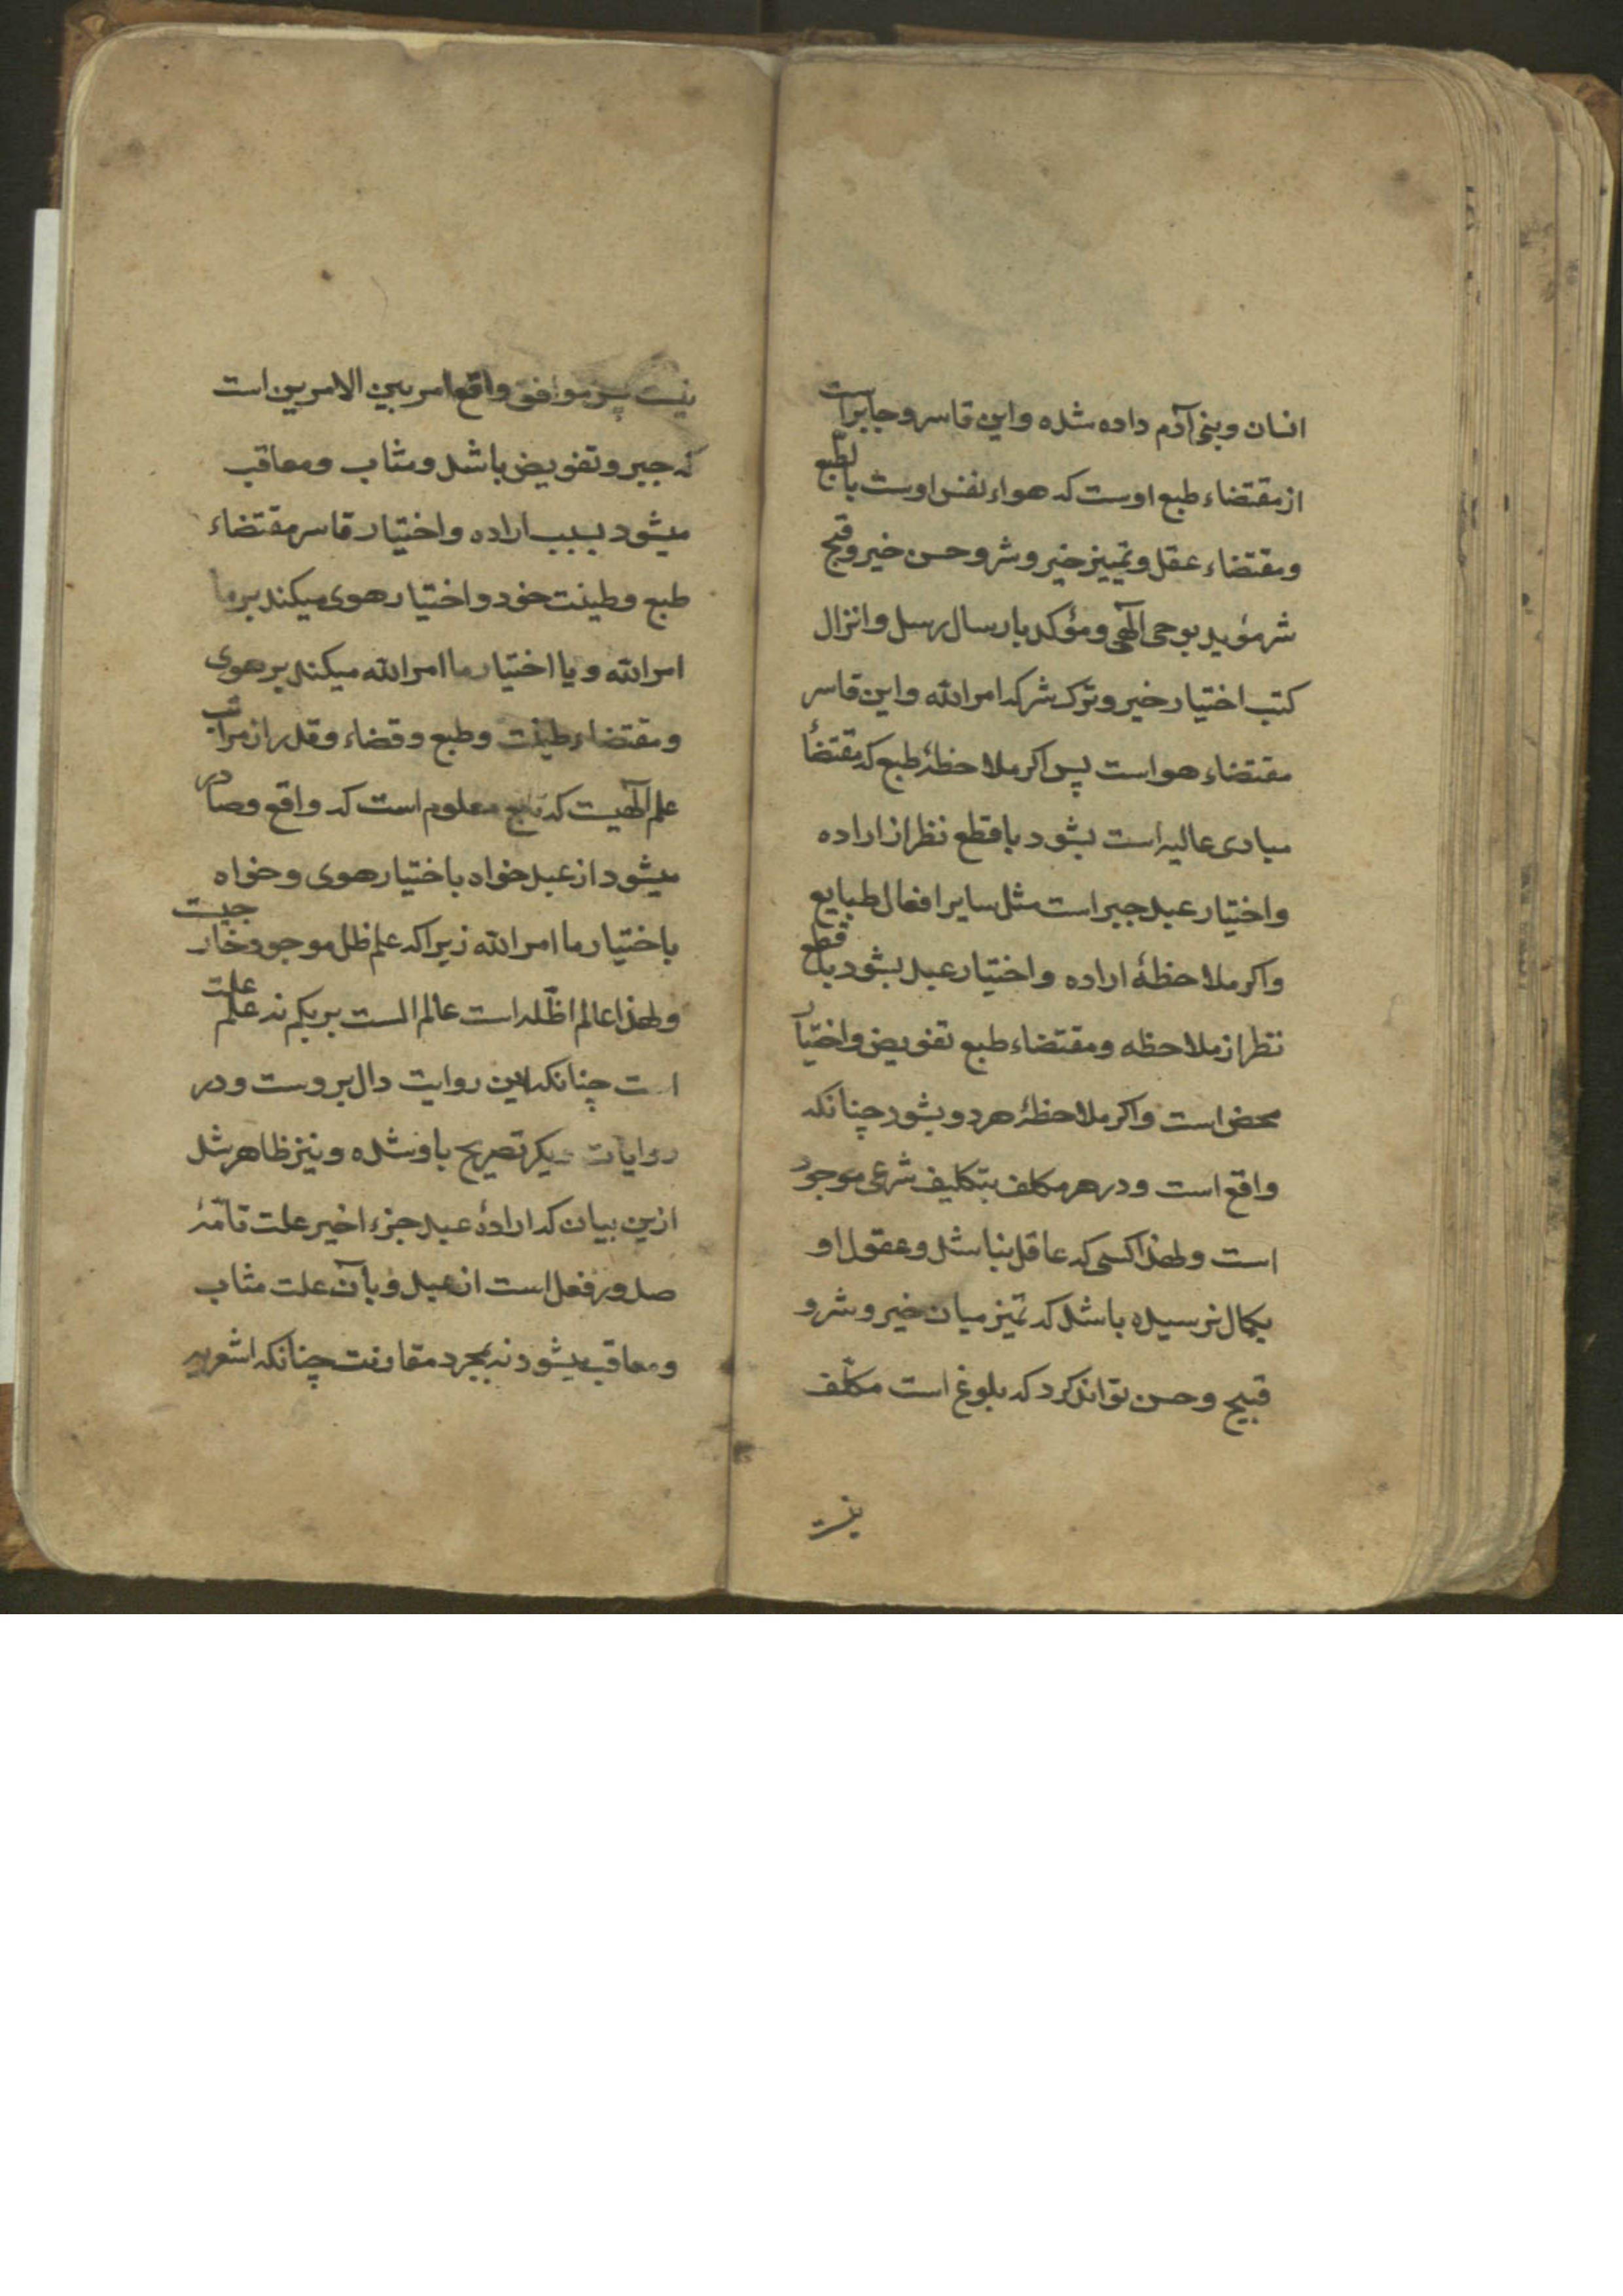 انسان و بنی آدم داده شده و این قاسر و جابر است
از مقتضاء طبع اوست که هواء نفس اوست بالطبع
و مقتضاء عقل و تمییز خیر و شر و حسن خیر و قبح
شر مؤید بوحی آلهی و مؤکد بارسال رسل و انزال
کتب اختیار خیر و ترک شر که امر الله و این قاسر
مقتضاء هواست پس اکر ملاحظهٔ طبع که مقتضأ
مبادی عالیه است بشود با قطع نظر از اراده
و اختیار عبد جبر است مثل سایر افعال طبایع
و اکر ملاحظهٔ اراده و اختیار عبد بشود با قطع
نظر از ملاحظه و مقتضاء طبع تفویض و اختیار
محض است و اکر ملاحظهٔ هر دو بشود چنانکه
واقع است و در هر مکلف بتکلیف شرعی موجود
است و لهذا کسی که عاقل نباشد و عقول او
بکمال نرسیده باشد که تمیز میان خیر و شر و
قبیح و حسن تواند کرد که بلوغ است مکلف
نیست
نیست پس موافق واقع امر بین الامرین است
که جبر و تفویض باشد و مثاب و معاقب
میشود بسبب اراده و اختیار قاسر مقتضاء
طبع و طینت خود و اختیار هوی میکند بر ما
امر الله و یا اختیار ما امر الله میکند بر هوی
و مقتضاء طینت و طبع و قضاء و قدر از مراتب
علم آلهیست که تابع معلوم است که واقع و صادر
میشود از عبد خواه باختیار هوی و خواه
باختیار ما امر الله زیرا که علم ظل موجود خارجیست
و لهذا عالم اظلّه است عالم الست بربکم نه علم علت
است چنانکه این روایت دال بر وست و در
روایات دیکر تصریح باو شده و نیز ظاهر شد
ازین بیان که ارادهٔ عبد جزء اخیر علت تامّهٔ
صدور فعل است از عبد و بآن علت مثاب
و معاقب میشود نه بمجرد مقارنت چنانکه اشعریه